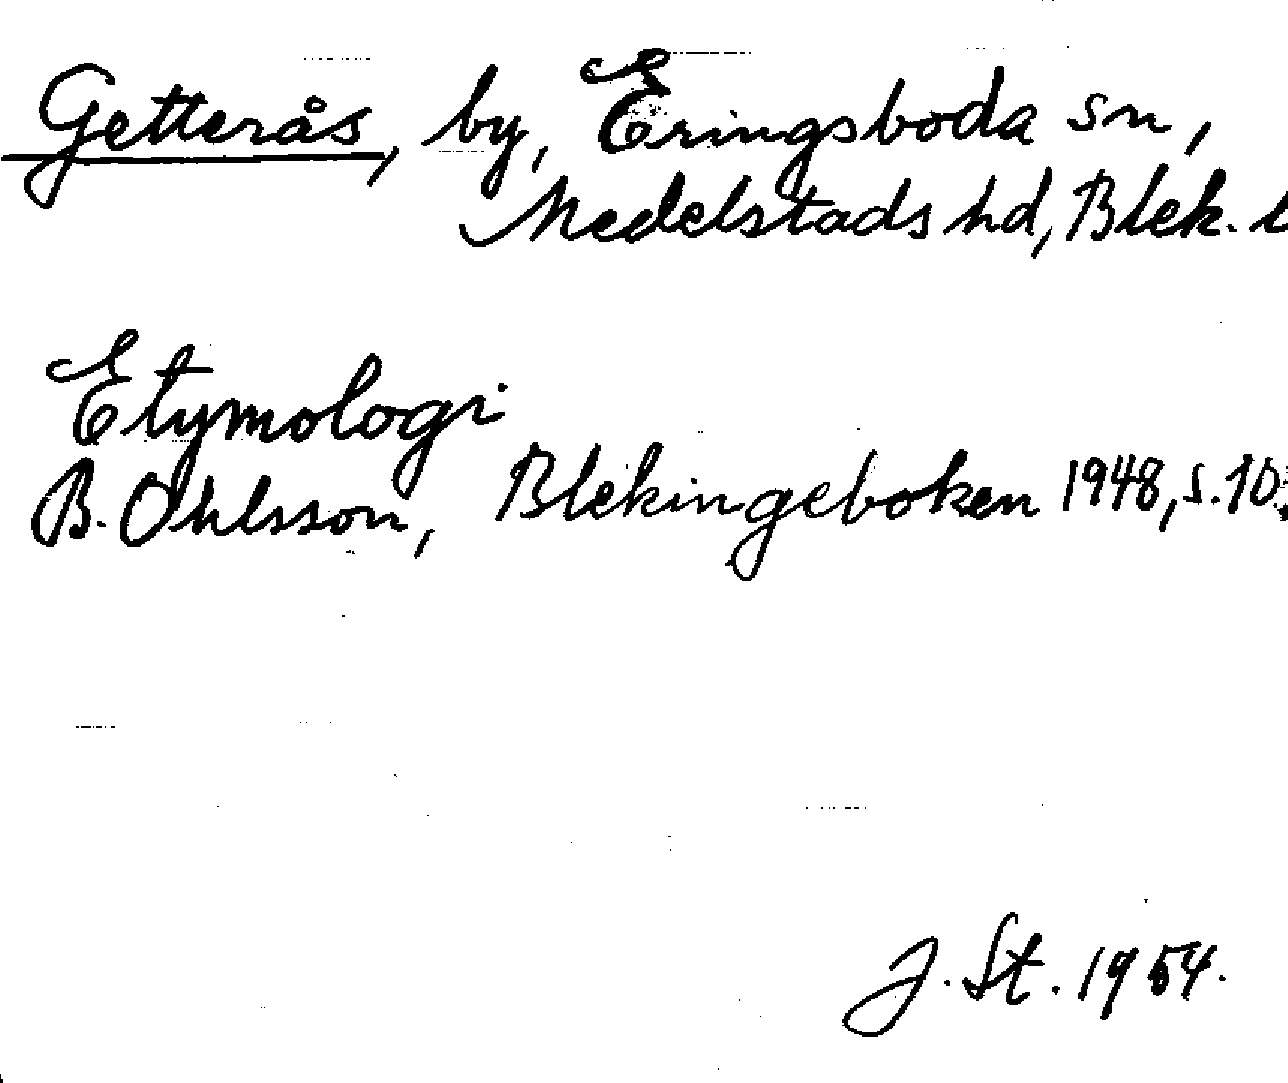 Getterås, by, Eringsboda sn,
Medelstads hd, Blek. l
Etymologi
B. Ohlsson, Blekingeboken 1948, s. 10
J. St. 1954.